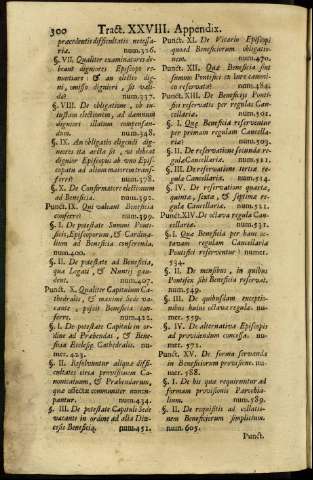 300 Tract. XXVIII. Appendix.
præcedentis difficultatis notissariæ. num.326.
§. VII. Qualiter examinatores debeant digniores Episcopo renuntiare: & an electio digni, omisso digniori, sit valida? num.337.
§. VIII. De obligatione, ob injustam electionem, ad damnum digniori illatum compensandum. num.348.
§. IX. An obligatio eligendi digniores ita arcta sit, ut debeat dignior Episcopus ab uno Episcopatu ad alium materem transferri? num.378.
§. X. De Confirmatore electionum ad Beneficia. num.392.
Punct. IX. Qui valeant Beneficia conferre? num.399.
§. I. De potestate Summi Pontificis, Episcoporum, & Cardinalium ad Beneficia conferenda. num.400.
§. II. De potestate ad Beneficia, qua Legati, & Nuntij gaudent. num.407.
Punct. X. Qualiter Capitulum Cathedralis, & maximè Sede vacante, possit Beneficia conferre. num.422.
§. I. De potestate Capituli in ordine ad Præbendas, & Beneficia Ecclesiæ Cathedralis. numer.423.
§. II. Resolvuntur aliquæ difficultates circa provisionem Canonicatuum, & Præbendarum, quæ albæ communiter nuncupantur. num.434.
§. III. De potestate Capituli Sede vacante in ordine ad alia Diœcesis Beneficia. num.451.
Punct. XI. De Vicario Episcopi quoad Beneficiorum obligationem. num.470.
Punct. XII. Quæ Beneficia sint summo Pontifici in jure canonico reservata? num.484.
Punct. XIII. De Beneficiis Pontifici reservatis per regulas Cancellariæ. num.501.
§. I. Quæ Beneficia reserventur per primam regulam Cancellariæ? num.503.
§. II. De reservatione secundæ regulæ Cancellariæ. num.511.
§. III. De reservatione tertiæ regulæ Cancellariæ. num.514.
§. IV. De reservatione quartæ, quintæ, sextæ, & septimæ regulæ Cancellariæ. num.521.
Punct. XIV. De octava regula Cancellariæ. num.531.
§. I. Quæ Beneficia per hanc octavam regulam Cancellariæ Pontifici reserventur? numer. 534.
§. II. De mensibus, in quibus Pontifex sibi Beneficia reservat. num.549.
§. III. De quibusdam exceptionibus hujus octavæ regulæ. numer. 559.
§. IV. De alternativa Episcopis ad providendum concessa. numer. 572.
Punct. XV. De forma servanda in Beneficiorum provisione. num.588.
§. I. De his quæ requiruntur ad formam provisionis Parochialium. num.589.
§. II. De requisitis ad collationem Beneficiorum simplicium. num.608.
Punct.